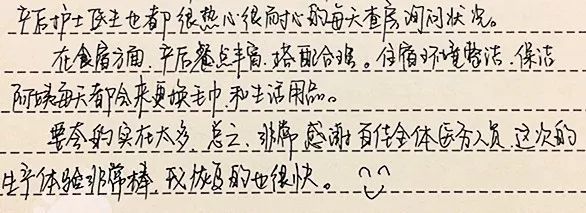 产后护士医生也都很热心很耐心的每天查房询问状况。
在食宿方面，产后餐点丰富，搭配合理。住宿环境整洁，保洁
阿姨每天都会来更换毛巾和生活用品。
要夸的实在太多，总之，非常感谢百佳全体医务人员，这次的
生产体验非常棒，我恢复的也很快。